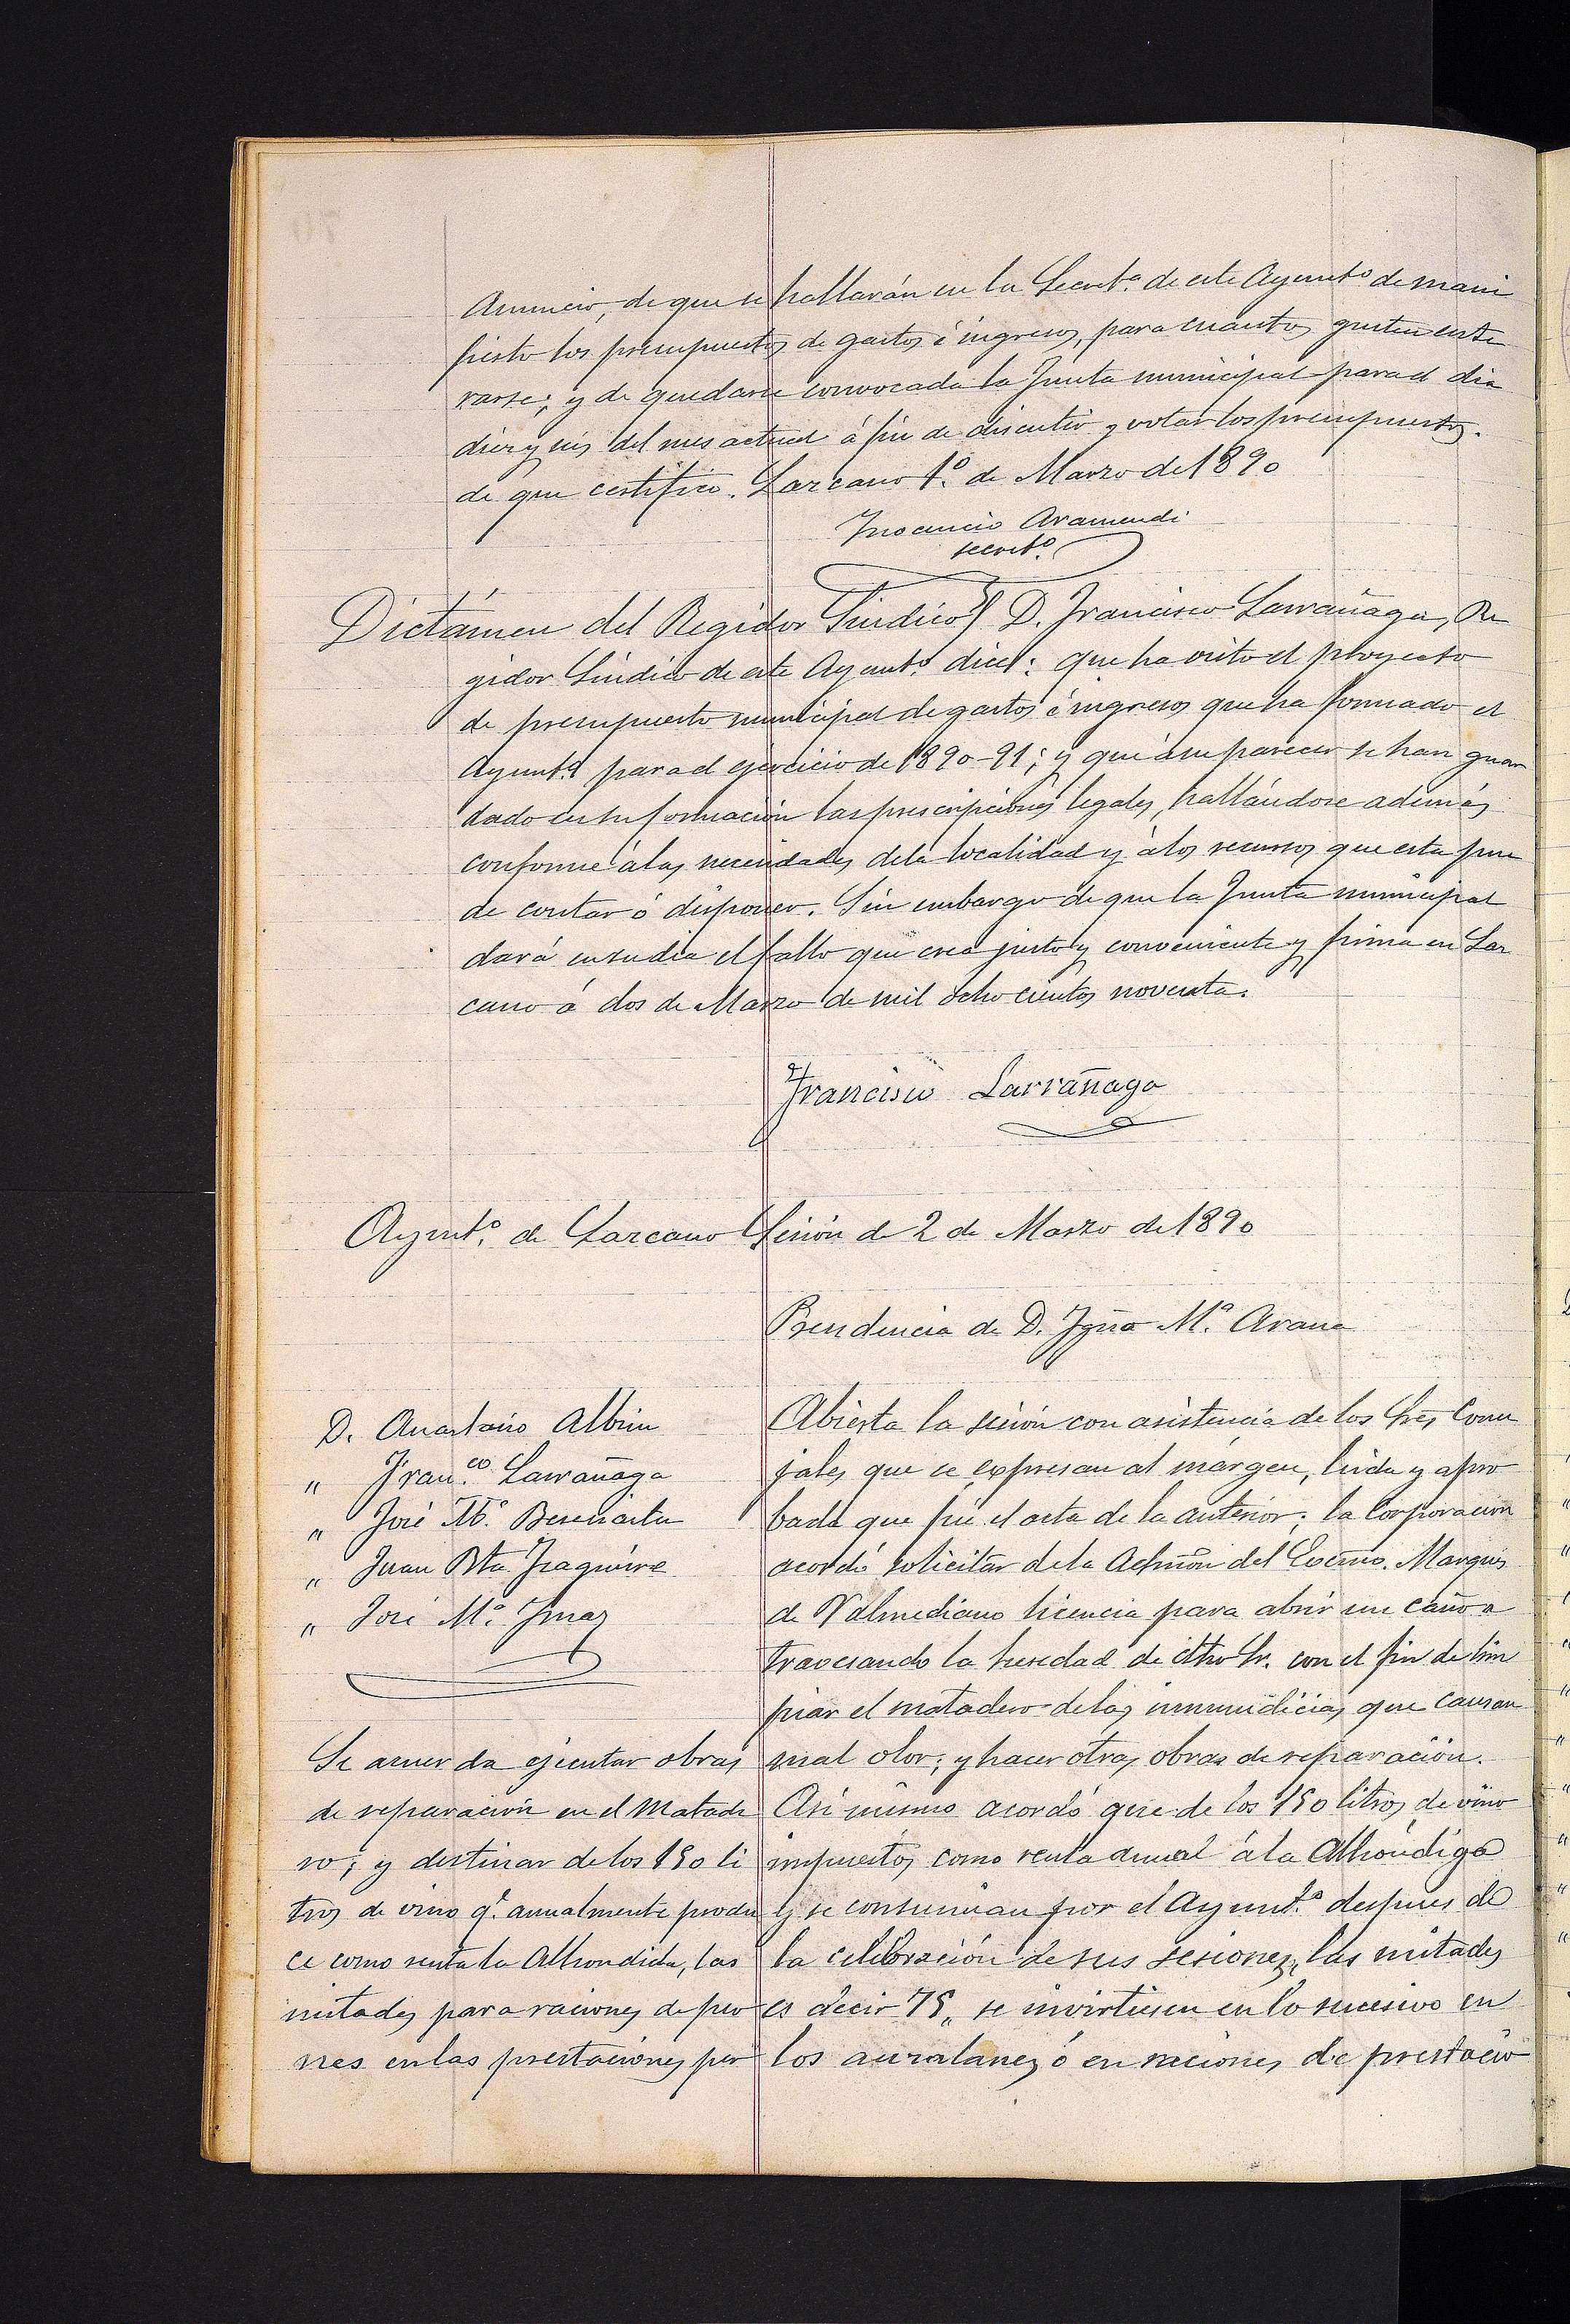 Anuncio, de que se hallarán en la Secret.ª de este Ayunt.º de mani
fiesto los presupuestos de gastos é ingresos, para cuantos gusten ente
rarse; y de quedarse convocada la Junta municipal para el dia
diez y seis del mes actual á fin de discutir y votar los presupuestos.
de que certifico. Lazcano 1.º de Marzo de 1890
Inocencio Aramendi
secret.º
Dictámen del Regidor Sindico} D. Francisco Larrañaga, Re
gidor Sindico de este Ayunt.º dice: que ha visto el proyecto
de presupuesto municipal de gastos é ingresos que ha formado el
Ayunt.º para el ejercicio de 1890-91; y que á su parecer se han guar
dado en su formación las prescripciones legales, hallándose además
conforme á las necesidades de la localidad y á los recursos que esta pue
de contar ó disponer. Sin embargo de que la Junta municipal
dará en su dia el fallo que crea justo y conveniente y firma en Laz
cano á dos de Marzo de mil ocho cientos noventa.
Francisco Larrañaga
Ayunt.º de Lazcano Sesión de 2 de Marzo de 1890
Presidencia de D. Igño M.ª Arana
D. Anastasio Albisu
" Fran.co Larrañaga
" José M.ª
" Juan Bta Izaguirre
" José M.ª Imaz
Se acuerda ejecutar obras
de reparación en el Matade
ro; y destinar de los 150 li
tros de vino q.e anualmente produ
ce como renta la Alhondida, las
mitades para raciones de peo
nes en las prestaciones per
Abierta la sesión con asistencia de los Sres Conce
jales que se expresan al márgen, leida y apro
bada que fué el acta de la anterior; la Corporación
acordó solicitar de la Admon del Excmo. Marques
de Valmediano licencia para abrir un caño a
travesando la heredad de dtho Sr. con el fin de lim
piar el matadero de las inmundicias que causan
mal olor; y hacer otras obras de reparación.
Asi mismo acordó que de los 150 litros de vino
impuestos como renta anual á la Alhóndiga
y se consumian por el Ayunt.º despues de
la celebración de sus sesiones, las mitades
es decir 75" se invirtiesen en lo sucesivo en
los auzolanez ó en raciones de prestacio